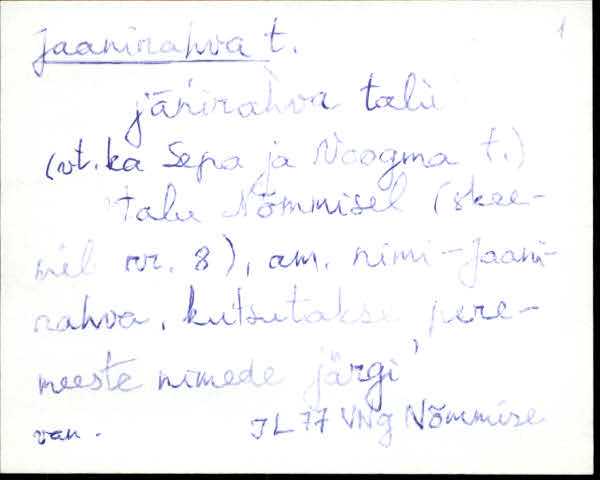 jaanirahva t. 1
jānirahva talu
(vt. ka Sepa ja Noogma t.)
talu Nõmmisel (skee-
mil nr. 8), am. nimi - Jaani-
rahva, kutsutakse pere-
meeste nimede järgi
van. JL 77 VNg Nõmmise